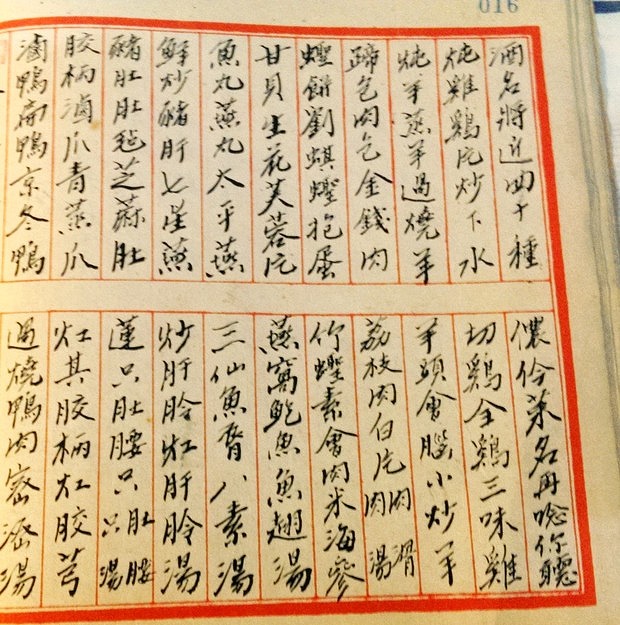 016
酒名將近四十種
儂伶菜名再唸你聽
炖雞鷄片炒下水
切鷄全鷄三味雞
炖羊蒸羊過燒羊
羊頭會腦小炒羊
蹄包肉包金錢肉
荔枝肉白片肉肉滑湯
蟶餅劉蜞蟶抱蛋
竹蟶素會肉米海參
甘貝生花芙蓉片
燕窩鮑魚魚翅湯
魚丸燕丸太平燕
三仙魚唇八素湯
鮮炒豬肝七星燕
炒肝肣灴肝肣湯
豬肚肚毡芝蔴肚
蓮只肚腰只肚腰只湯
胶柄滷爪青蒸爪
灴其胶柄灴胶芎
滷鴨扁鴨京冬鴨
過燒鴨肉湯